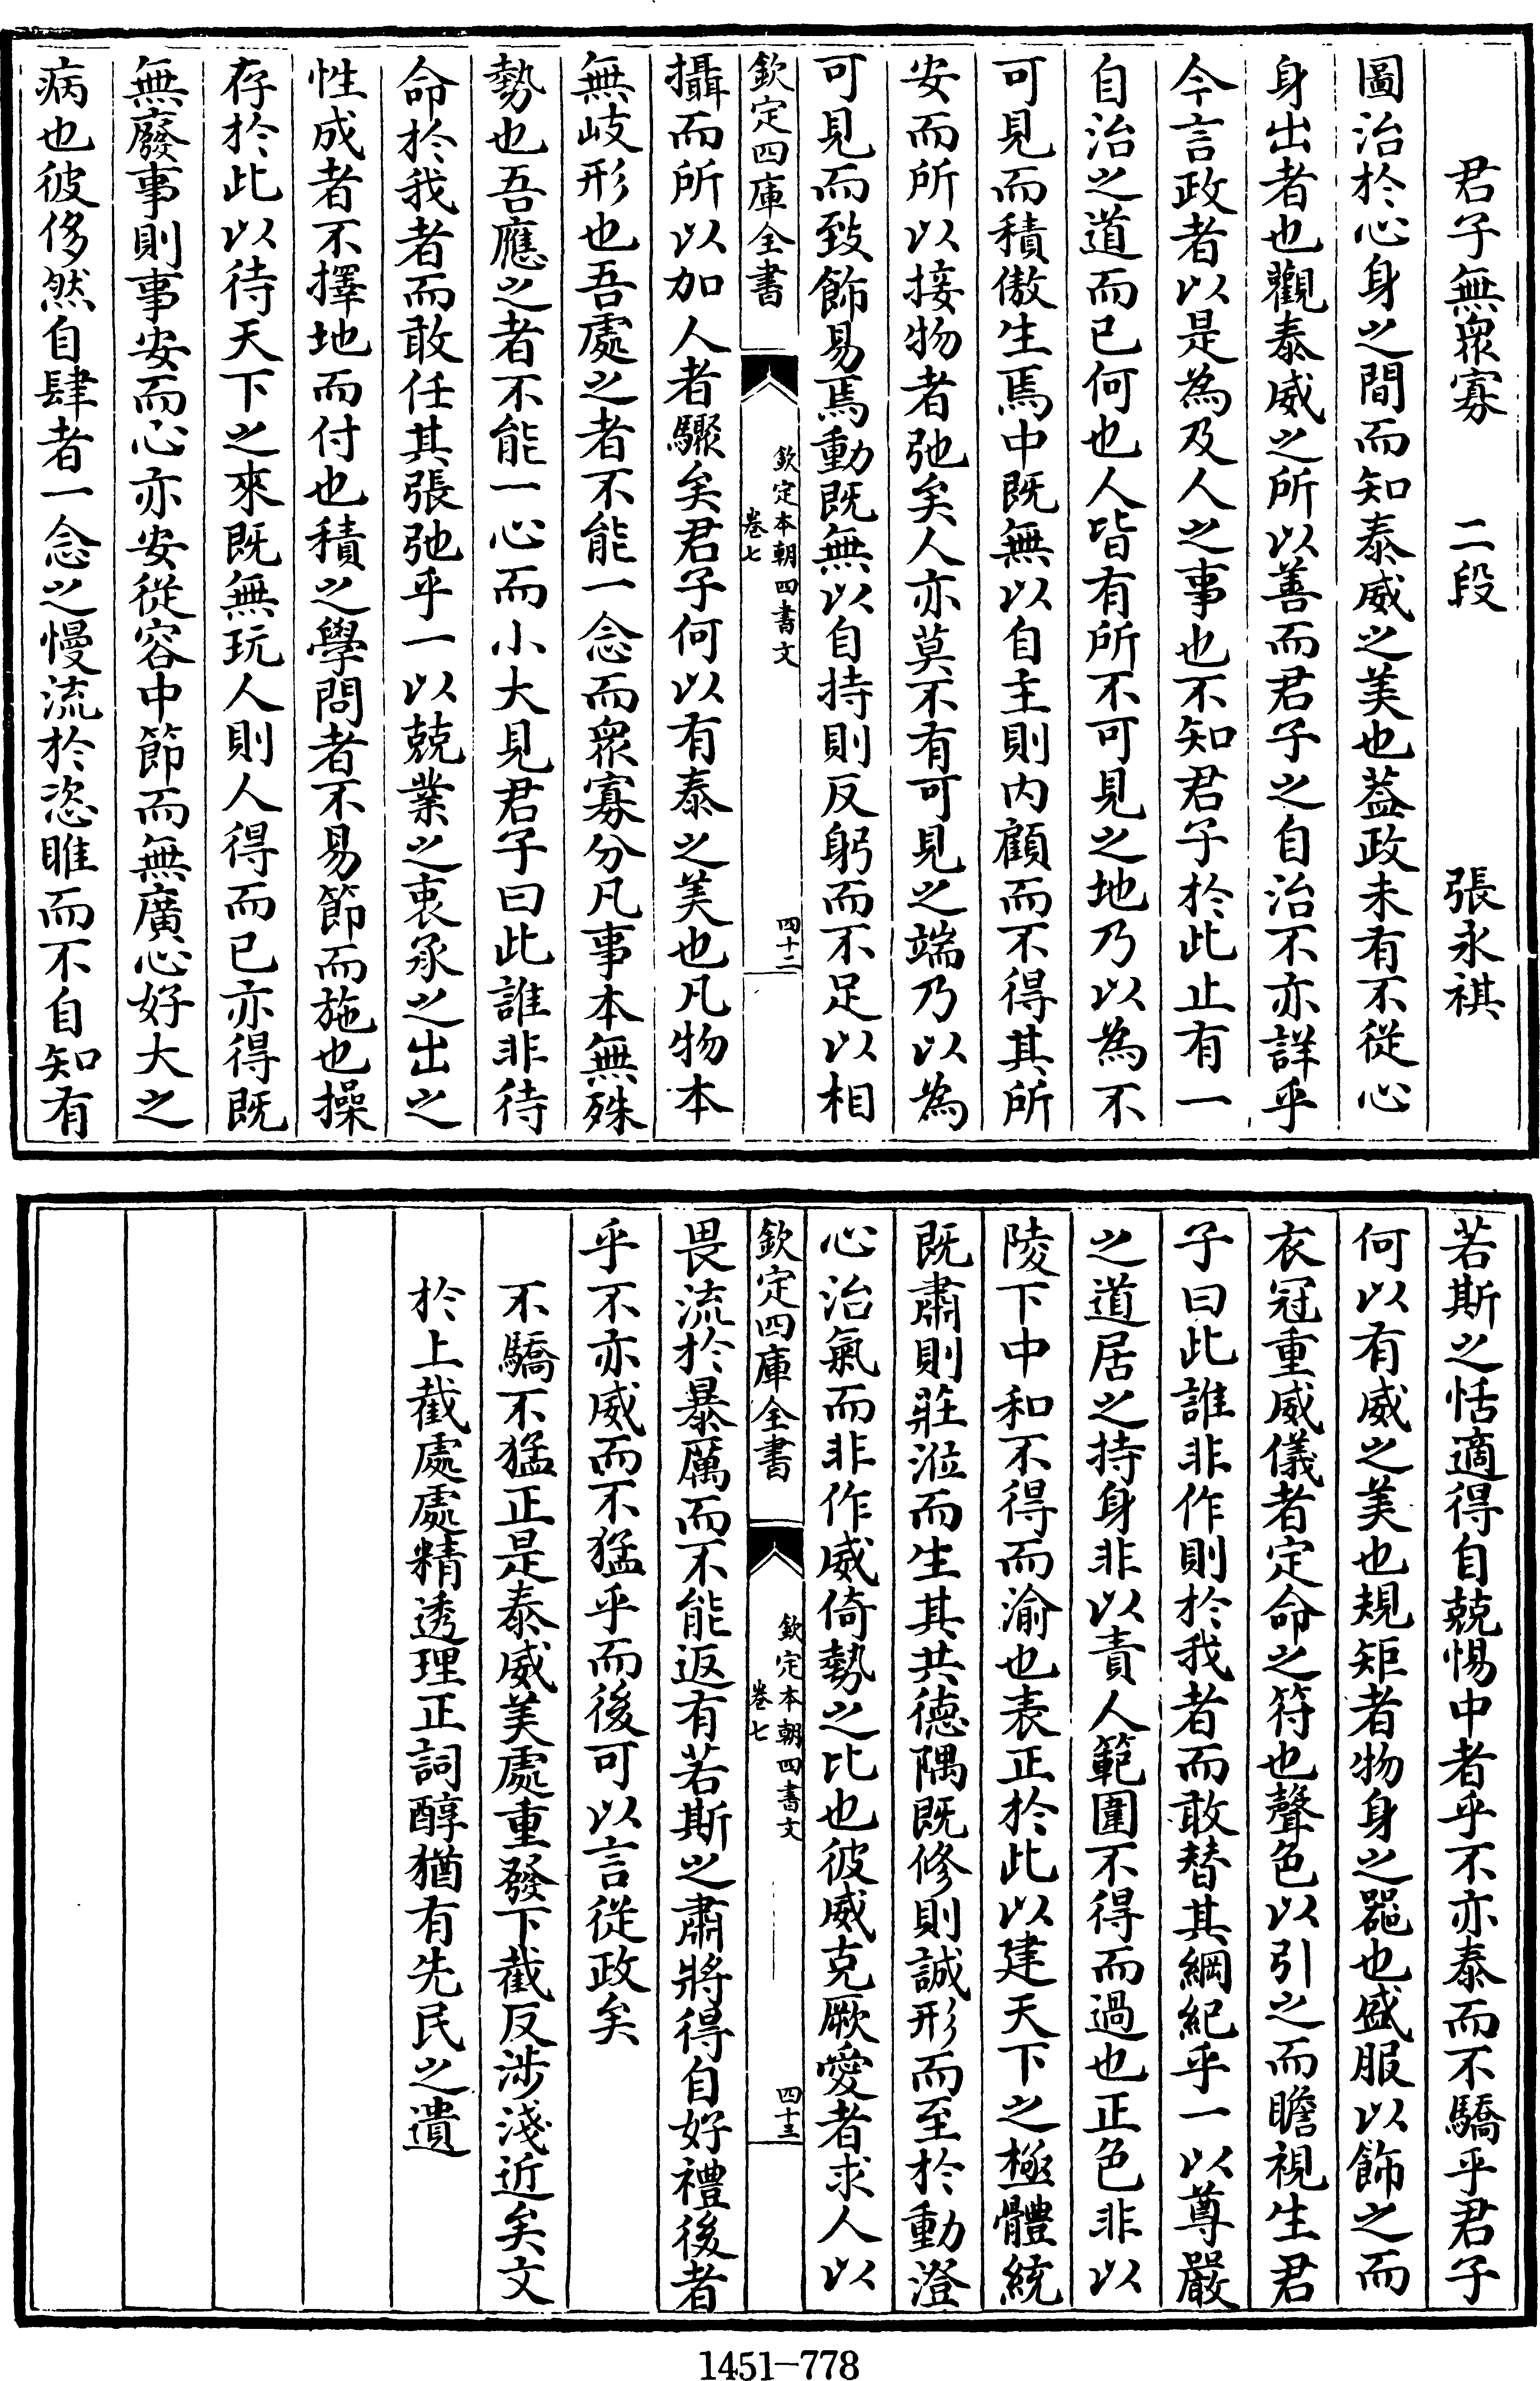 君子無衆寡　二段　張永祺
圖治於心身之間而知泰威之美也葢政未有不從心
身出者也觀泰威之所以善而君子之自治不亦詳乎
今言政者以是為及人之事也不知君子於此止有一
自治之道而已何也人皆有所不可見之地乃以為不
可見而積傲生焉中既無以自主則内顧而不得其所
安而所以接物者弛矣人亦莫不有可見之端乃以為
可見而致飾易焉動既無以自持則反躬而不足以相
欽定四庫全書
欽定本朝四書文
卷七
四十二
攝而所以加人者驟矣君子何以有泰之美也凡物本
無歧形也吾處之者不能一念而衆寡分凡事本無殊
勢也吾應之者不能一心而小大見君子曰此誰非待
命於我者而敢任其張弛乎一以兢業之衷承之出之
性成者不擇地而付也積之學問者不易節而施也操
存於此以待天下之來既無玩人則人得而已亦得既
無廢事則事安而心亦安從容中節而無廣心好大之
病也彼侈然自肆者一念之慢流於恣睢而不自知有
若斯之恬適得自兢惕中者乎不亦泰而不驕乎君子
何以有威之美也規矩者物身之器也盛服以飾之而
衣冠重威儀者定命之符也聲色以引之而瞻視生君
子曰此誰非作則於我者而敢替其綱紀乎一以尊嚴
之道居之持身非以責人範圍不得而過也正色非以
陵下中和不得而渝也表正於此以建天下之極體統
既肅則莊涖而生其共德隅既修則誠形而至於動澄
心治氣而非作威倚勢之比也彼威克厥愛者求人以
欽定四庫全書
欽定本朝四書文
卷七
四十三
畏流於暴厲而不能返有若斯之肅將得自好禮後者
乎不亦威而不猛乎而後可以言從政矣
不驕不猛正是泰威美處重發下截反涉淺近矣文
於上截處處精透理正詞醇猶有先民之遺
1451-778